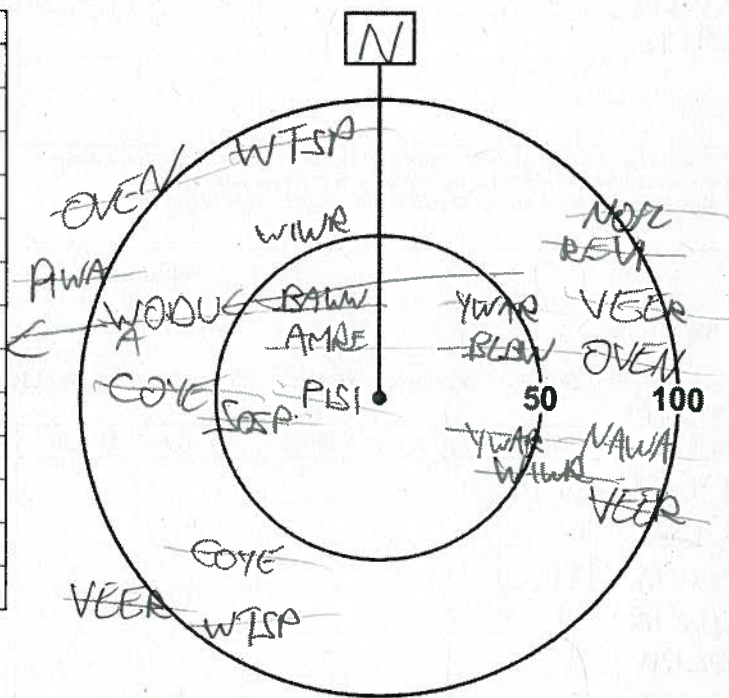 N
WTSP
OVEN
WIWR
NOFL
REVI
AWA
WODU
BAWW
YWAR
VEER
A
AMRE
BLBW
OVEN
COYE
PISI
50
100
SOSP
YWAR
NAWA
WIWR
VEER
COYE
VEER
WTSP